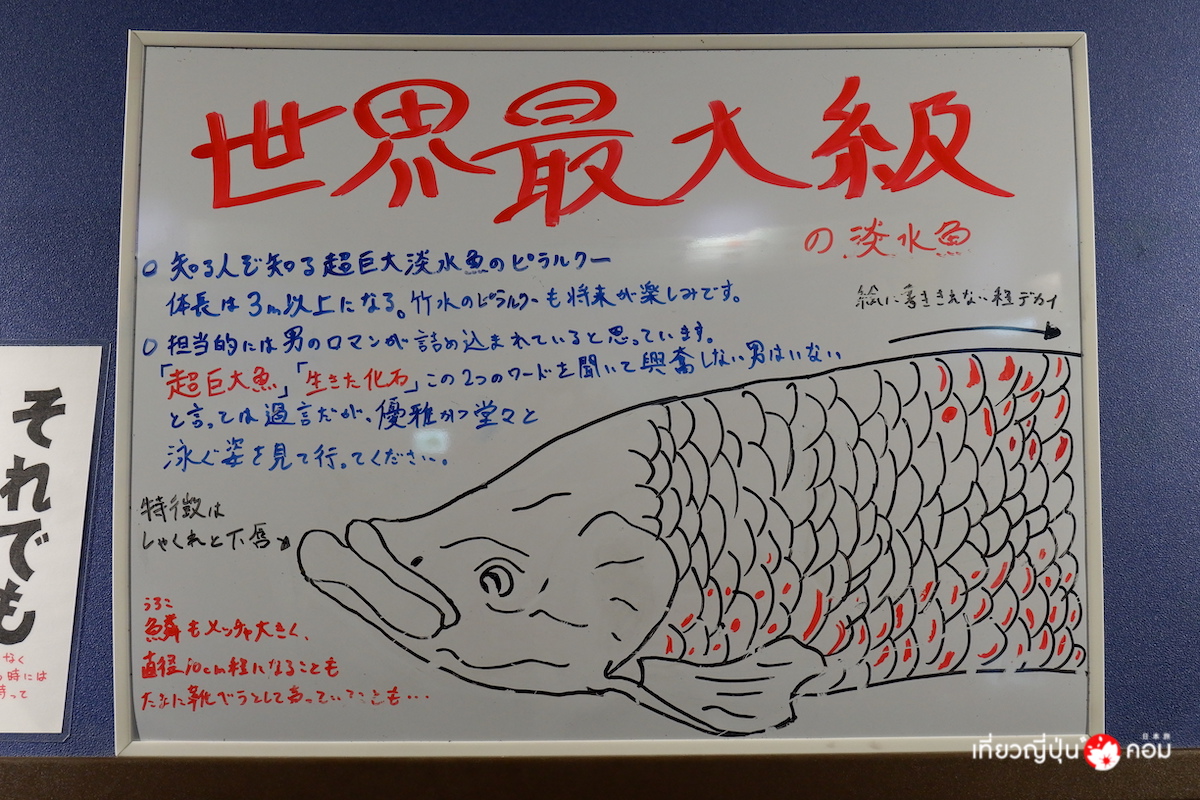 世界最大級
の淡水魚
○ 知る人ぞ知る超巨大淡水魚のピラルクー
体長は3m以上になる。竹水のピラルクーも将来が楽しみです。
絵に書ききれない程デカイ
○ 担当的には男のロマンが詰め込まれていると思っています。
「超巨大魚」「生きた化石」この2つのワードを聞いて興奮しない男はいない
と言っては過言だが、優雅かつ堂々と
泳ぐ姿を見て行ってください。
特徴は
しゃくれと下唇
うろこ
鱗もメッチャ大きく、
直径10cm程になることも
たまに靴ベラとして売っていることも…
それでも
なく
時には
持って
เที่ยวญี่ปุ่น คอม
日本旅